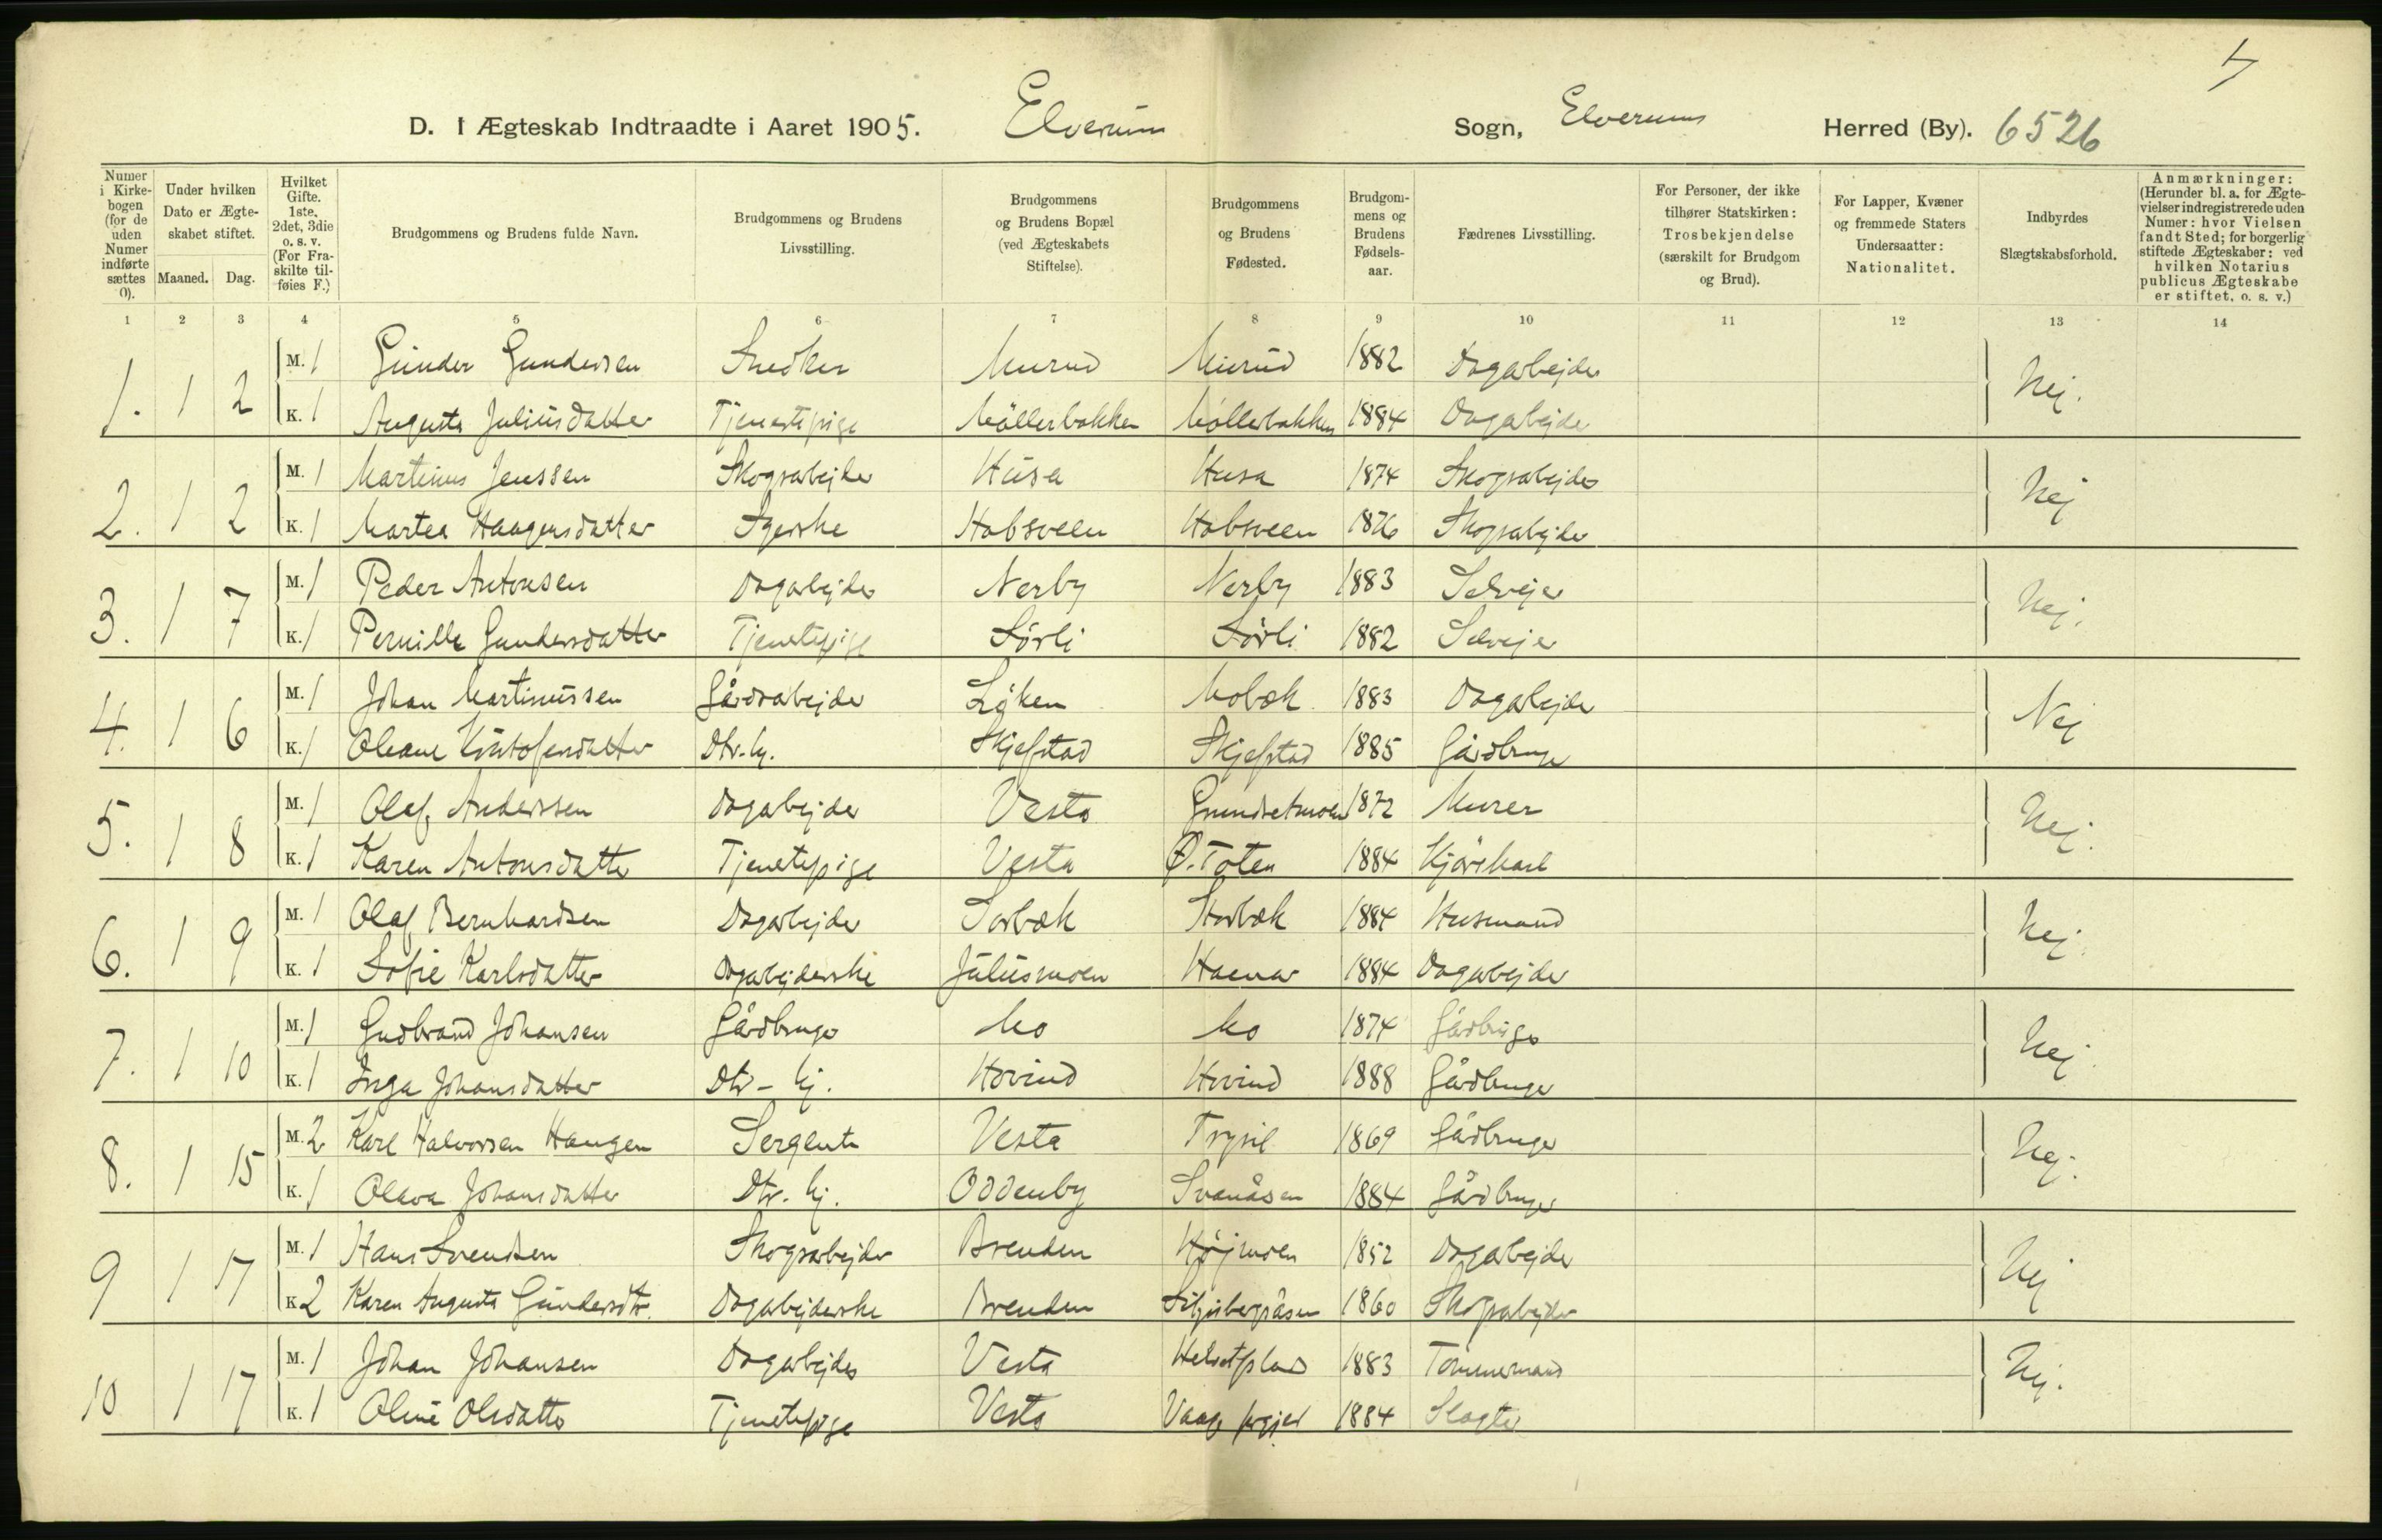 4
D. I Ægteskab Indtraadte i Aaret 1905. Elverum Sogn, Elverums Herred (By). 6526
Numer i Kirkebogen (for de uden Numer indførte sættes 0).
Under hvilken Dato er Ægteskabet stiftet.
Maaned. Dag.
Hvilket Gifte. 1ste, 2det, 3die o. s. v. (For Fraskilte tilføies F.)
Brudgommens og Brudens fulde Navn.
Brudgommens og Brudens Livsstilling.
Brudgommens og Brudens Bopæl (ved Ægteskabets Stiftelse).
Brudgommens og Brudens Fødested.
Brudgommens og Brudens Fødselsaar.
Fædrenes Livsstilling.
For Personer, der ikke tilhører Statskirken: Trosbekjendelse (særskilt for Brudgom og Brud).
For Lapper, Kvæner og fremmede Staters Undersaatter: Nationalitet.
Indbyrdes Slægtskabsforhold.
Anmærkninger: (Herunder bl. a. for Ægtevielser indregistrerede uden Numer: hvor Vielsen fandt Sted; for borgerlig stiftede Ægteskaber: ved hvilken Notarius publicus Ægteskabe er stiftet, o. s. v.)
1 2 3 4 5 6 7 8 9 10 11 12 13 14
1. 1 2 M. 1 Gunder Gundersen Snedker Murud Murud 1882 Dagarbejder Nej.
K. 1 Augusta Juliusdatter Tjenestepige Möllerbakken Möllerbakken 1884 Dagarbejder
2. 1 2 M. 1 Martinus Jenssen Skogsarbejder Husa Husa 1874 Skogsarbejder Nej
K. 1 Martea Haagensdatter Syerske Habsveen Habsveen 1876 Skogsarbejder
3. 1 7 M. 1 Peder Antonsen Dagarbejder Nerby Nerby 1883 Selvejer Nej.
K. 1 Pernille Gundersdatter Tjenestepige Sörli Sörli 1882 Selvejer
4. 1 6 M. 1 Johan Martinussen Gårdsarbejder Löken Mobæk 1883 Dagarbejder Nej
K. 1 Oleane Kristofersdatter Dtr. hj. Skjefstad Skjefstad 1885 Gårdbruger
5. 1 8 M. 1 Olaf Anderssen Dagarbejder Vesta Grundsetmoen 1872 Murer Nej.
K. 1 Karen Antonsdatter Tjenestepige Vesta Ø. Toten 1884 Kjörekarl
6. 1 9 M. 1 Olaf Bernhardsen Dagarbejder Sorbæk 1884 Husmand Nej.
K. 1 Sofie Karlsdatter Dagarbejderske Juliusmoen Hamar 1884 Dagarbejder
7. 1 10 M. 1 Gudbrand Johansen Gårdbruger Mo Mo 1874 Gårdbruger Nej.
K. 1 Inga Johansdatter Dtr - hj. Hovind Hovind 1888 Gårdbruger
8. 1 15 M. 2 Karl Halvorsen Haugen Sergeant Vesta Trysil 1869 Gårdbruger Nej.
K. 1 Olava Johansdatter Dtr. hj. Oddenby Svenåsen 1884 Gårdbruger
9 1 17 M. 1 Hans Svendsen Skogsarbejder Brenden Höjmoen 1852 Dagarbejder Nej
K 2 Karen Augusta Gundersdtr. Dagarbejderske Brenden 1860 Skogsarbejder
10 1 17 M. 1 Johan Johansen Dagarbejder Vesta 1883 Tömmermand Nej.
K. 1 Oline Olsdatter Tjenestepige Vesta 1884 Slagter